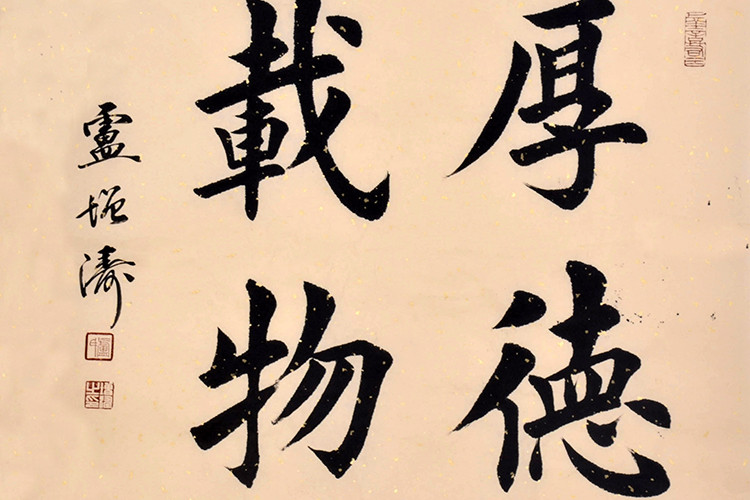 厚德
載物
盧增濤